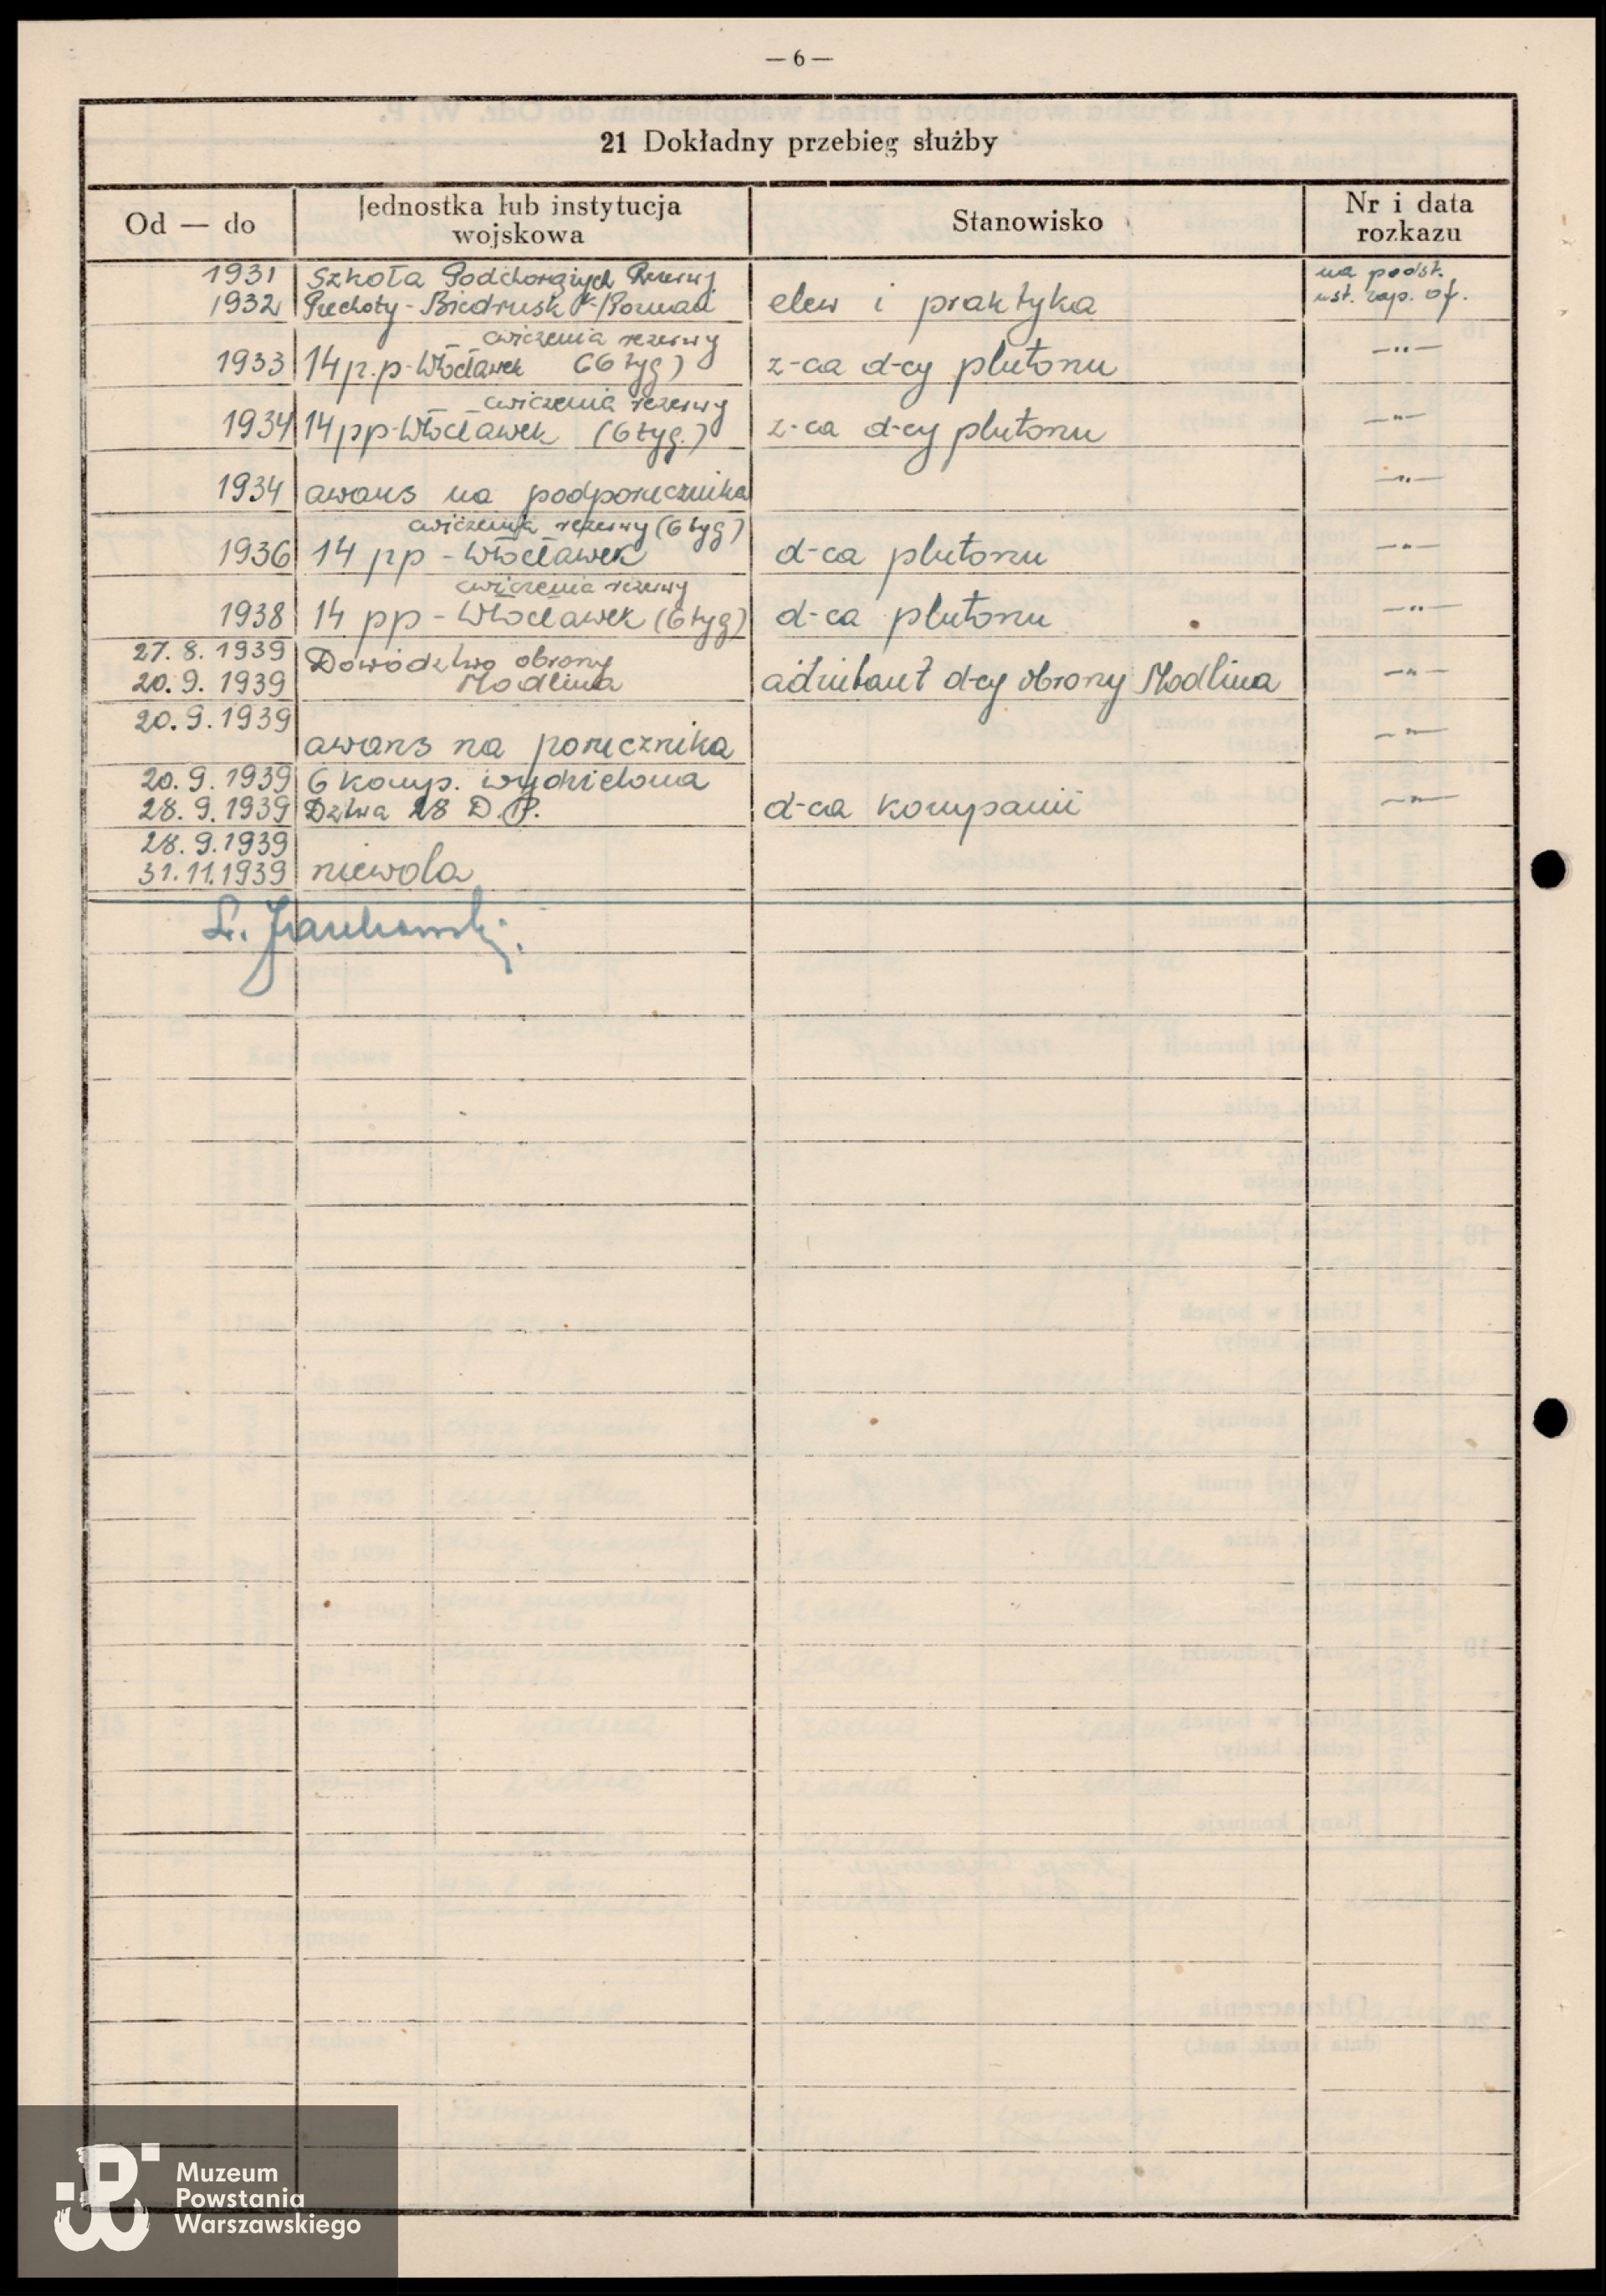 — 6 —
21 Dokładny przebieg służby
Od — do
Jednostka lub instytucja
wojskowa
Stanowisko
Nr i data
rozkazu
1931 Szkoła Podchorążych Rezerwy na podst.
1932 Piechoty - Biedrusk k/Poznań elew i praktyka ust. zap. of.
ćwiczenia rezerwy
1933 14 p.p - Włocławek (6 tyg) z-ca d-cy plutonu —"—
ćwiczenia rezerwy
1934 14 pp - Włocławek (6 tyg.) z-ca d-cy plutonu —"—
1934 awans na podporucznika —"—
ćwiczenia rezerwy (6 tyg)
1936 14 pp - Włocławek d-ca plutonu —"—
ćwiczenia rezerwy
1938 14 pp - Włocławek (6 tyg) d-ca plutonu —"—
27. 8. 1939 Dowództwo obrony
20. 9. 1939 Modlina adiutant d-cy obrony Modlina —"—
20. 9. 1939
awans na porucznika —"—
20. 9. 1939 6 komp. wydzielona
28. 9. 1939 Dztwa 28 D.P. d-ca kompanii —"—
28. 9. 1939
31. 11. 1939 niewola
Muzeum
Powstania
Warszawskiego